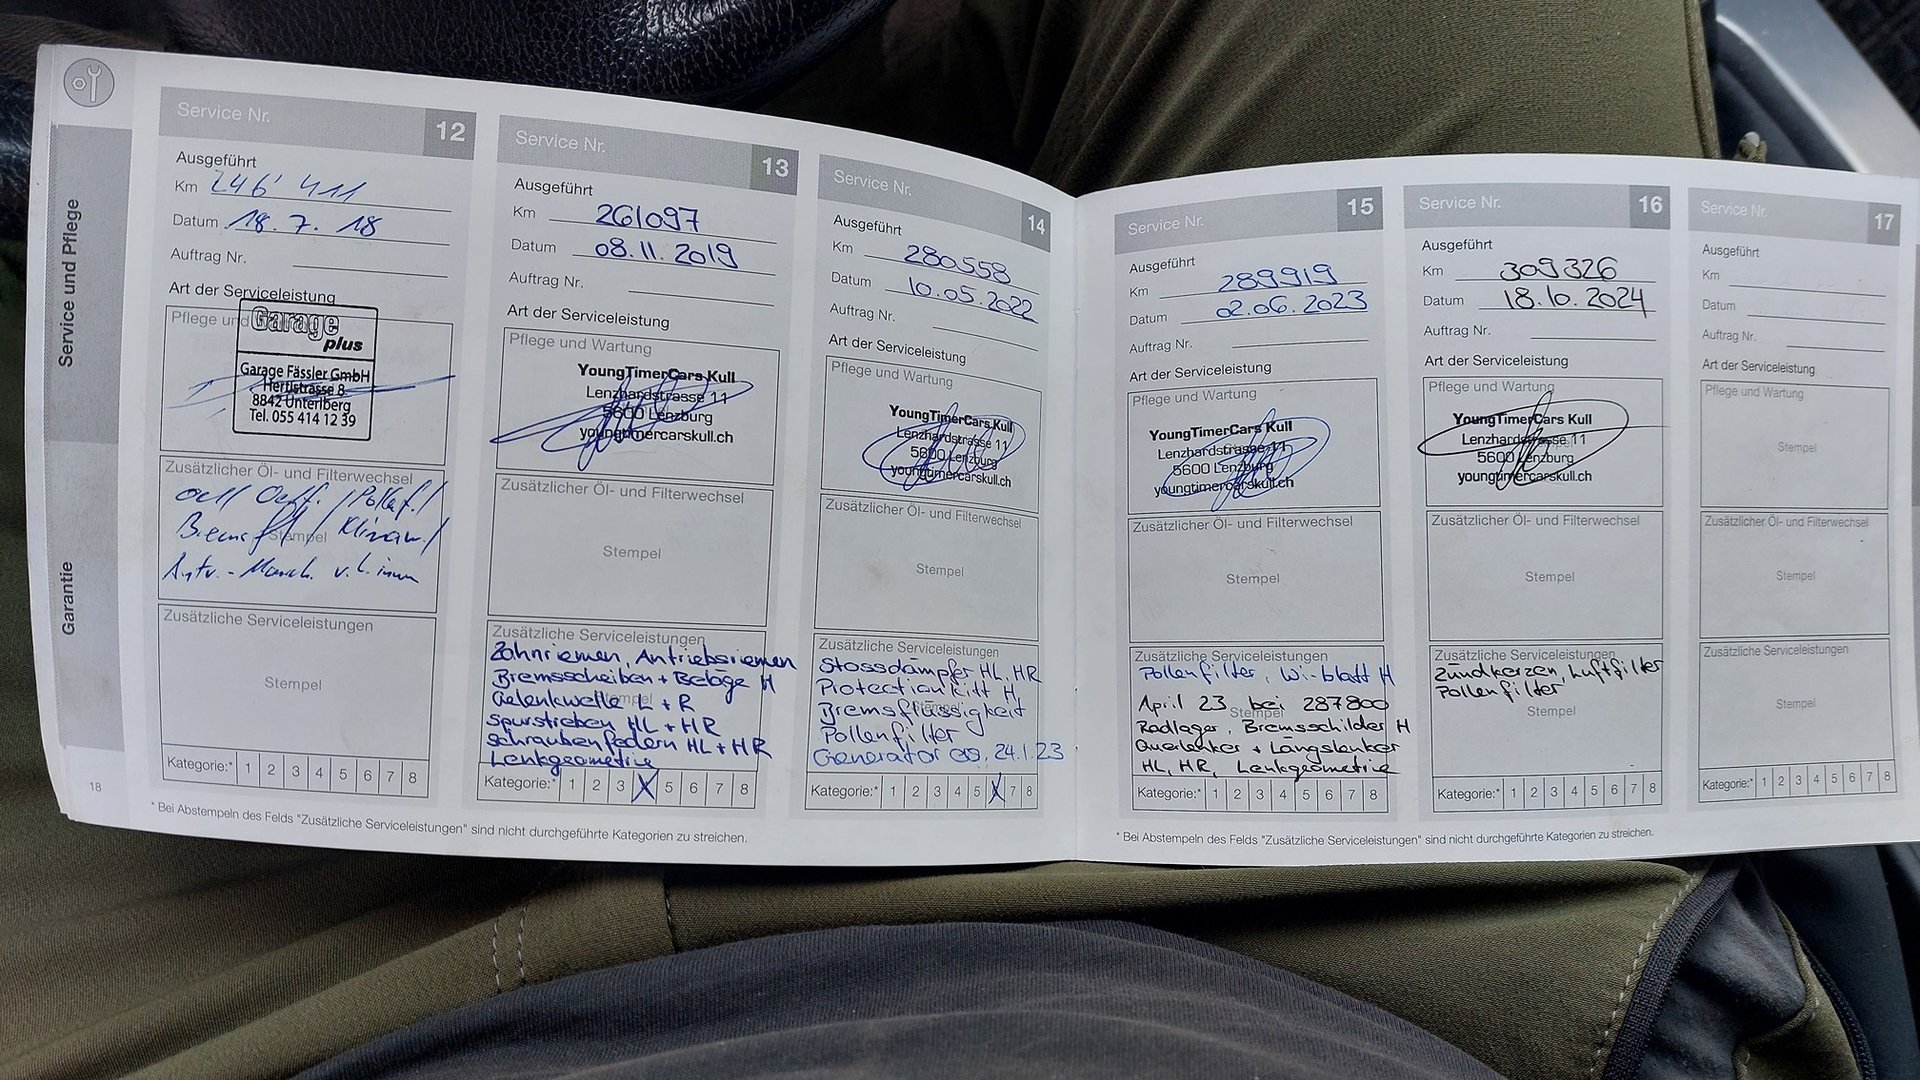 Service und Pflege
Garantie
Service Nr. 12
Ausgeführt
Km 246'411
Datum 18.7.18
Auftrag Nr.
Art der Serviceleistung
Pflege und
Garage
plus
Garage Fässler GmbH
Herti strasse 8
8842 Unteriberg
Tel. 055 414 12 39
Zusätzlicher Öl- und Filterwechsel
Stempel
Zusätzliche Serviceleistungen
Stempel
Kategorie:* 1 2 3 4 5 6 7 8
18
Service Nr. 13
Ausgeführt
Km 261097
Datum 08.11.2019
Auftrag Nr.
Art der Serviceleistung
Pflege und Wartung
YoungTimerCars Kull
Lenzhardstrasse 11
5600 Lenzburg
youngtimercarskull.ch
Zusätzlicher Öl- und Filterwechsel
Stempel
Zusätzliche Serviceleistungen
Zahnriemen, Antriebsriemen
Bremsscheiben + Beläge H
Gelenkwelle L + R
Stempel
Spurstreben HL + HR
Schraubenfedern HL + HR
Lenkgeometrie
Kategorie:* 1 2 3 X 5 6 7 8
Service Nr. 14
Ausgeführt
Km 280558
Datum 10.05.2022
Auftrag Nr.
Art der Serviceleistung
Pflege und Wartung
YoungTimerCars Kull
Lenzhardstrasse 11
5600 Lenzburg
youngtimercarskull.ch
Zusätzlicher Öl- und Filterwechsel
Stempel
Zusätzliche Serviceleistungen
Stossdämpfer HL, HR
Protectionkitt H,
Stempel
Bremsflüssigkeit
Pollenfilter
Generator 24.1.23
Kategorie:* 1 2 3 4 5 X 7 8
* Bei Abstempeln des Felds "Zusätzliche Serviceleistungen" sind nicht durchgeführte Kategorien zu streichen.
Service Nr. 15
Ausgeführt
Km 289919
Datum 02.06.2023
Auftrag Nr.
Art der Serviceleistung
Pflege und Wartung
YoungTimerCars Kull
Lenzhardstrasse 11
5600 Lenzburg
youngtimercarskull.ch
Zusätzlicher Öl- und Filterwechsel
Stempel
Zusätzliche Serviceleistungen
Pollenfilter, Wi-blatt H
April 23 bei 287800
Stempel
Radlager, Bremsschilder H
Querlenker + Längslenker
HL, HR, Lenkgeometrie
Kategorie:* 1 2 3 4 5 6 7 8
Service Nr. 16
Ausgeführt
Km 309326
Datum 18.10.2024
Auftrag Nr.
Art der Serviceleistung
Pflege und Wartung
YoungTimerCars Kull
Lenzhardstrasse 11
5600 Lenzburg
youngtimercarskull.ch
Zusätzlicher Öl- und Filterwechsel
Stempel
Zusätzliche Serviceleistungen
Zündkerzen, Luftfilter
Pollenfilter
Stempel
Kategorie:* 1 2 3 4 5 6 7 8
Service Nr. 17
Ausgeführt
Km
Datum
Auftrag Nr.
Art der Serviceleistung
Pflege und Wartung
Stempel
Zusätzlicher Öl- und Filterwechsel
Stempel
Zusätzliche Serviceleistungen
Stempel
Kategorie:* 1 2 3 4 5 6 7 8
* Bei Abstempeln des Felds "Zusätzliche Serviceleistungen" sind nicht durchgeführte Kategorien zu streichen.